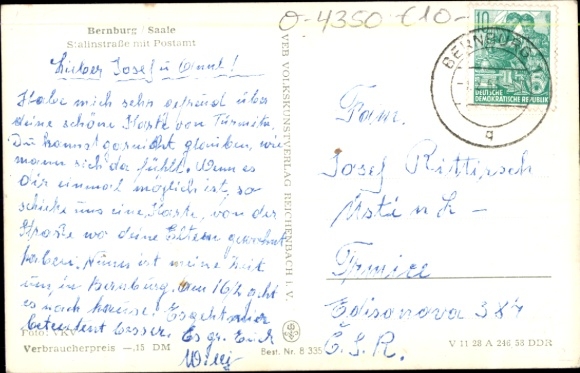 O-4350 €10-
Bernburg/Saale
Stalinstraße mit Postamt
Lieber Josef u.
Habe mich sehr gefreut über
deine schöne Karte von Türmitz.
Du kannst gar nicht glauben, wie
mann sich da fühlt. Wenn es
dir einmal möglich ist, so
schicke uns eine Karte, von der
Straße wo deine Eltern gewohnt
haben. Nun ist meine Zeit
um, in Bernburg. Am 16/2 geht
es nach hause! Es geht mir
bedeutend besser. Es gr. Euch
Willi
Foto: VKV
Verbraucherpreis —,15 DM
Best. Nr. B 335
VEB VOLKSKUNSTVERLAG REICHENBACH I. V.
10
DEUTSCHE
DEMOKRATISCHE REPUBLIK
BERNBURG
q
Fam.
Josef Rittirsch
Ustí n L -
Trmice
Edisonova 384
Č.S.R.
V 11 28 A 246 58 DDR